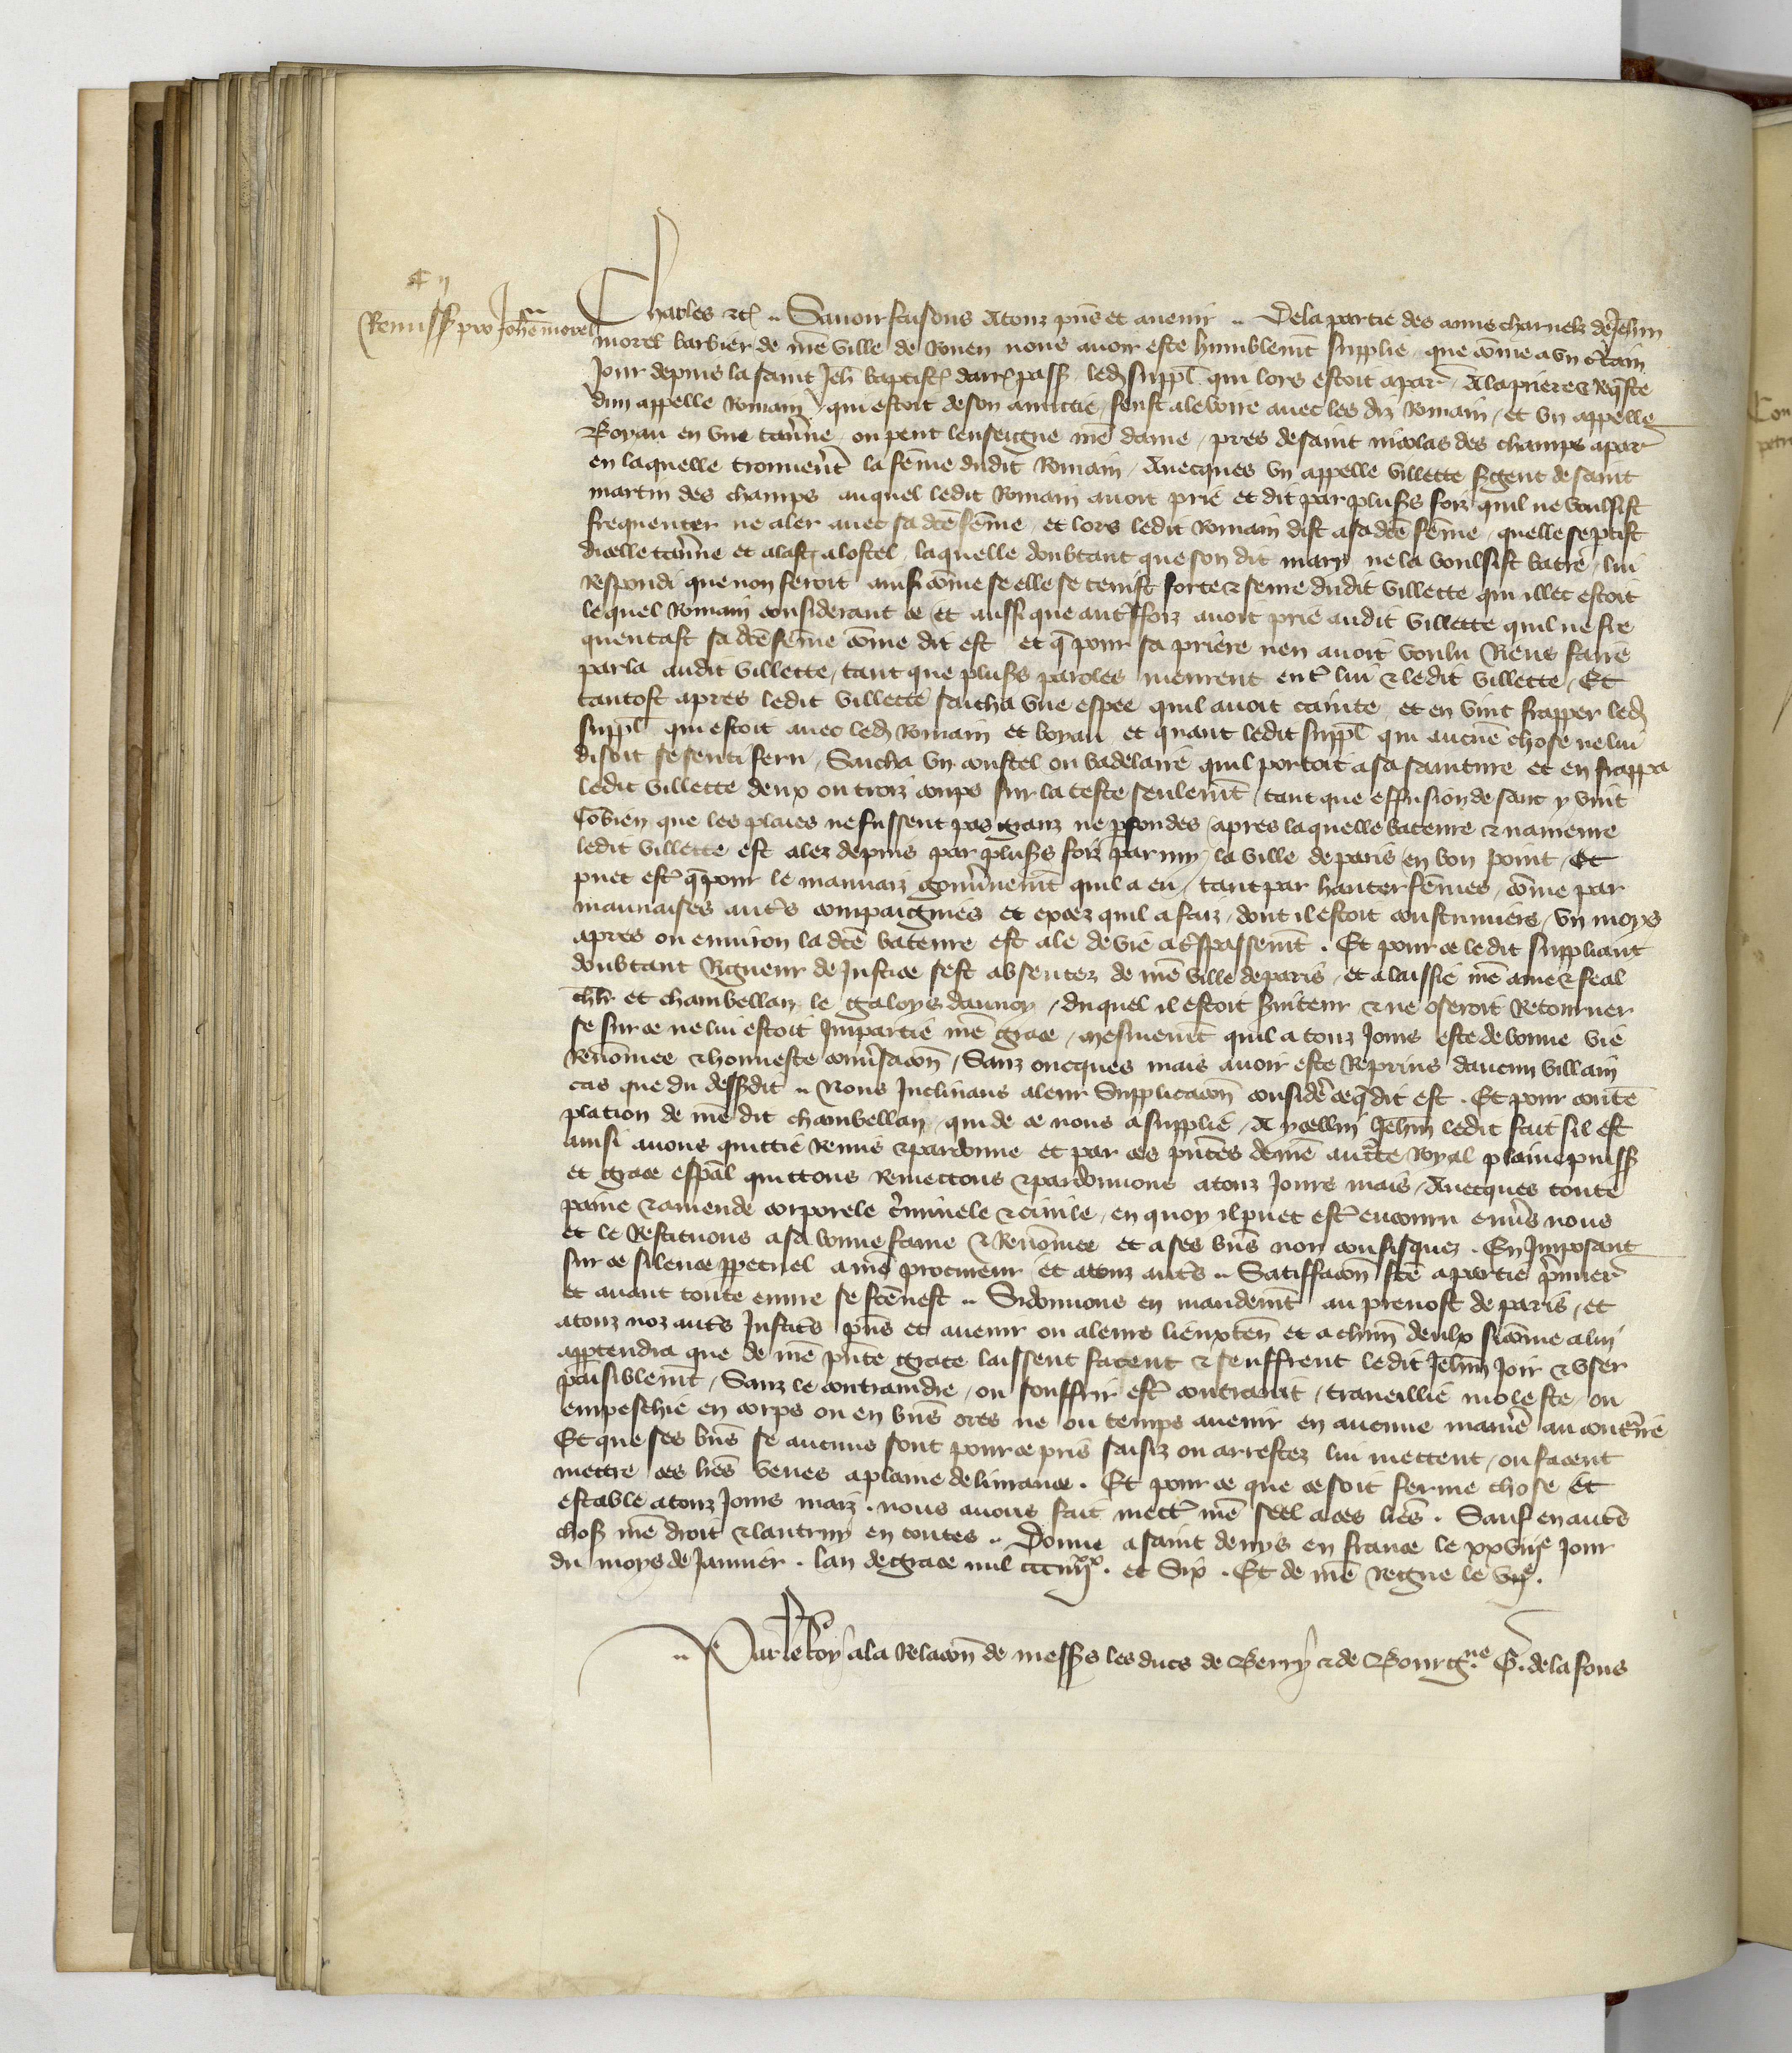 Remiss pro Joh̄e morel
Charles etc. Savoir faisons A touz p̄ns et avenir De la partie des amis charnelz de Jehan
morel barbier de n̄re ville de Rouen nous avoir esté humblem̄t supplié que cōme a un c̄tain
Jour depuis la saint Jeh̄ baptiste darr̄ pass led suppl̄ qui lors estoit a par̄ A la priere & req̄ste
dun appellé Romain qui estoit de son amictié feust alé boire avec les diz Romain et un appellé
Boyau en une tav̄ne ou pent lenseigne n̄re dame pres de saint nicolas des champs a par̄
en laquelle trouver̄t la fēme dudit Romain Avecques un appellé villette s̄gent de saint
martin des champs auquel ledit Romain avoit prié et dit par plus̄s foiz quil ne voulsist
frequenter ne aler avec sa dc̄e fēme et lors ledit Romain dist a sa dc̄e fēme quelle se p̄tist
dicelle tav̄ne et alast a lostel laquelle doubtant que son dit mary ne la voulsist batre lui
respondi que non feroit ainsi cōme se elle se tenist forte & seure dudit villette qui illec estoit
lequel Romain considerant ce et aussi que aut̄ffoiz avoit prié audit villette quil ne fre
quentast sa dc̄e fēme cōme dit est et q̄ pour sa priere nen avoit voulu Riens faire
parla audit villette tant que plus̄s paroles meurent ent̄ lui & ledit villette Et
tantost apres ledit villette saicha une espee quil avoit cainte et en vint frapper led
suppl̄ qui estoit avec led Romain et boyau et quant ledit suppl̄ qui aucūe chose ne lui
disoit se senti feru Saicha un coustel ou badelaire quil portoit a sa sainture et en frappa
ledit villette deux ou troiz coups sur la teste seulem̄t tant que effusion de sanc y vint
Cōbien que les plaies ne fussent pas granz ne p̄fondes apres laquelle bateure & navreure
ledit villette est alez depuis par plus̄s foiz parmy la ville de paris en bon point Et
puet est̄ q̄ pour le mauvaiz gouv̄nem̄t quil a eu tant par hanter fēmes cōme par
mauvaises aut̄s compaignies et excez quil a faiz dont il estoit coustumiers un moys
apres ou environ la dc̄e bateure est alé de vie a t̄spassem̄t. Et pour ce ledit suppliant
doubtant Rigueur de Justice sest absentez de n̄re ville de paris et a laissié n̄re amé & feal
ch̄lr et chambellan le galoys daunoy duquel il estoit s̄viteur & ne oseroit Retourner
se sur ce ne lui estoit Impartie n̄re grace mesmem̄t quil a touz Jours esté de bonne vie
Renōmee & honneste conv̄sacōn Sanz oncques mais avoir esté Reprins daucun villain
cas que du dess̄dit Nous Inclinans a leur Supplicacōn consideré ce q̄ dit est. Et pour contē
plation de n̄re dit chambellan qui de ce nous a supplié A ycellui Jeh̄n ledit fait sil est
ainsi avons quittié Remis & pardonné et par ces p̄ntes de n̄re auct̄té Royal plaine puiss
et grace esp̄al quittons Remectons & pardonnons a touz Jours mais Avecques toute
paine & amende corporele c̄minele & civile en quoy il puet est̄ encouru env̄s nous
et le Restituons a sa bonne fame & Renōmee et a ses b̄ns non confisquez. En Imposant
sur ce silence p̄petuel a n̄re procureur et a touz aut̄s Satisfacōn fc̄e a partie p̄mier̄
et avant toute euvre se fc̄e nest Si donnons en mandem̄t au prevost de paris et
a touz noz aut̄s Justic̄s p̄ns et avenir ou a leurs lieuxten̄ et a ch̄un deulx si cōme a lui
app̄tendra que de n̄re p̄nte grace laissent facent & seuffrent ledit Jeh̄n Joir & user
paisiblem̄t Sanz le contraindre ou souffrir est̄ contraint traveillié molesté ou
empeschié en corps ou en b̄ns ores ne ou temps avenir en aucune mani̇̄e au cont̄re
Et que ses b̄ns se aucuns sont pour ce pris saisiz ou arrestez lui mettent ou facent
mettre ces l̄res veues a plaine delivrance. Et pour ce que ce soit ferme chose et
estable a touz Jours maiz nous avons fait mect̄ n̄re seel a ces l̄res. Sauf en aut̄s
chos̄ n̄re droit & lautruy en toutes Donné a saint denys en france le xxviije Jour
du moys de Janvier. lan de grace mil ccciiijxx. et Six. Et de n̄re Regne le vije.
Par le Roy a la Relacōn de mess̄s les ducs de Berry & de Bourg.ne G. de la fons